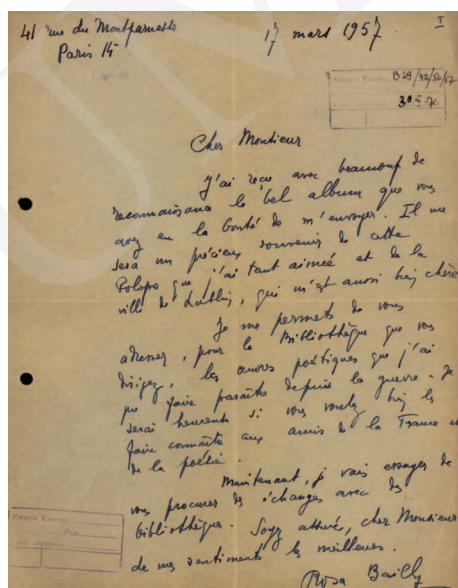 41 rue du Montparnasse
Paris 14
17 mars 1957.
I
B 29/42/56/57
30
Cher Monsieur
J'ai reçu avec beaucoup de
reconnaissance le bel album que vous
avez eu la bonté de m'envoyer. Il me
sera un précieux souvenir de cette
Pologne que j'ai tant aimée et de la
ville de Lublin, qui m'est aussi bien chère
Je me permets de vous
adresser, pour la Bibliothèque que vous
dirigez, les œuvres poétiques que j'ai
pu faire paraître depuis la guerre. Je
serai heureuse si vous voulez bien les
faire connaître aux amis de la France et
de la poésie.
Maintenant, je vais essayer de
vous procurer des échanges avec des
bibliothèques. Soyez assuré, cher Monsieur
de mes sentiments les meilleurs.
Rosa Bailly